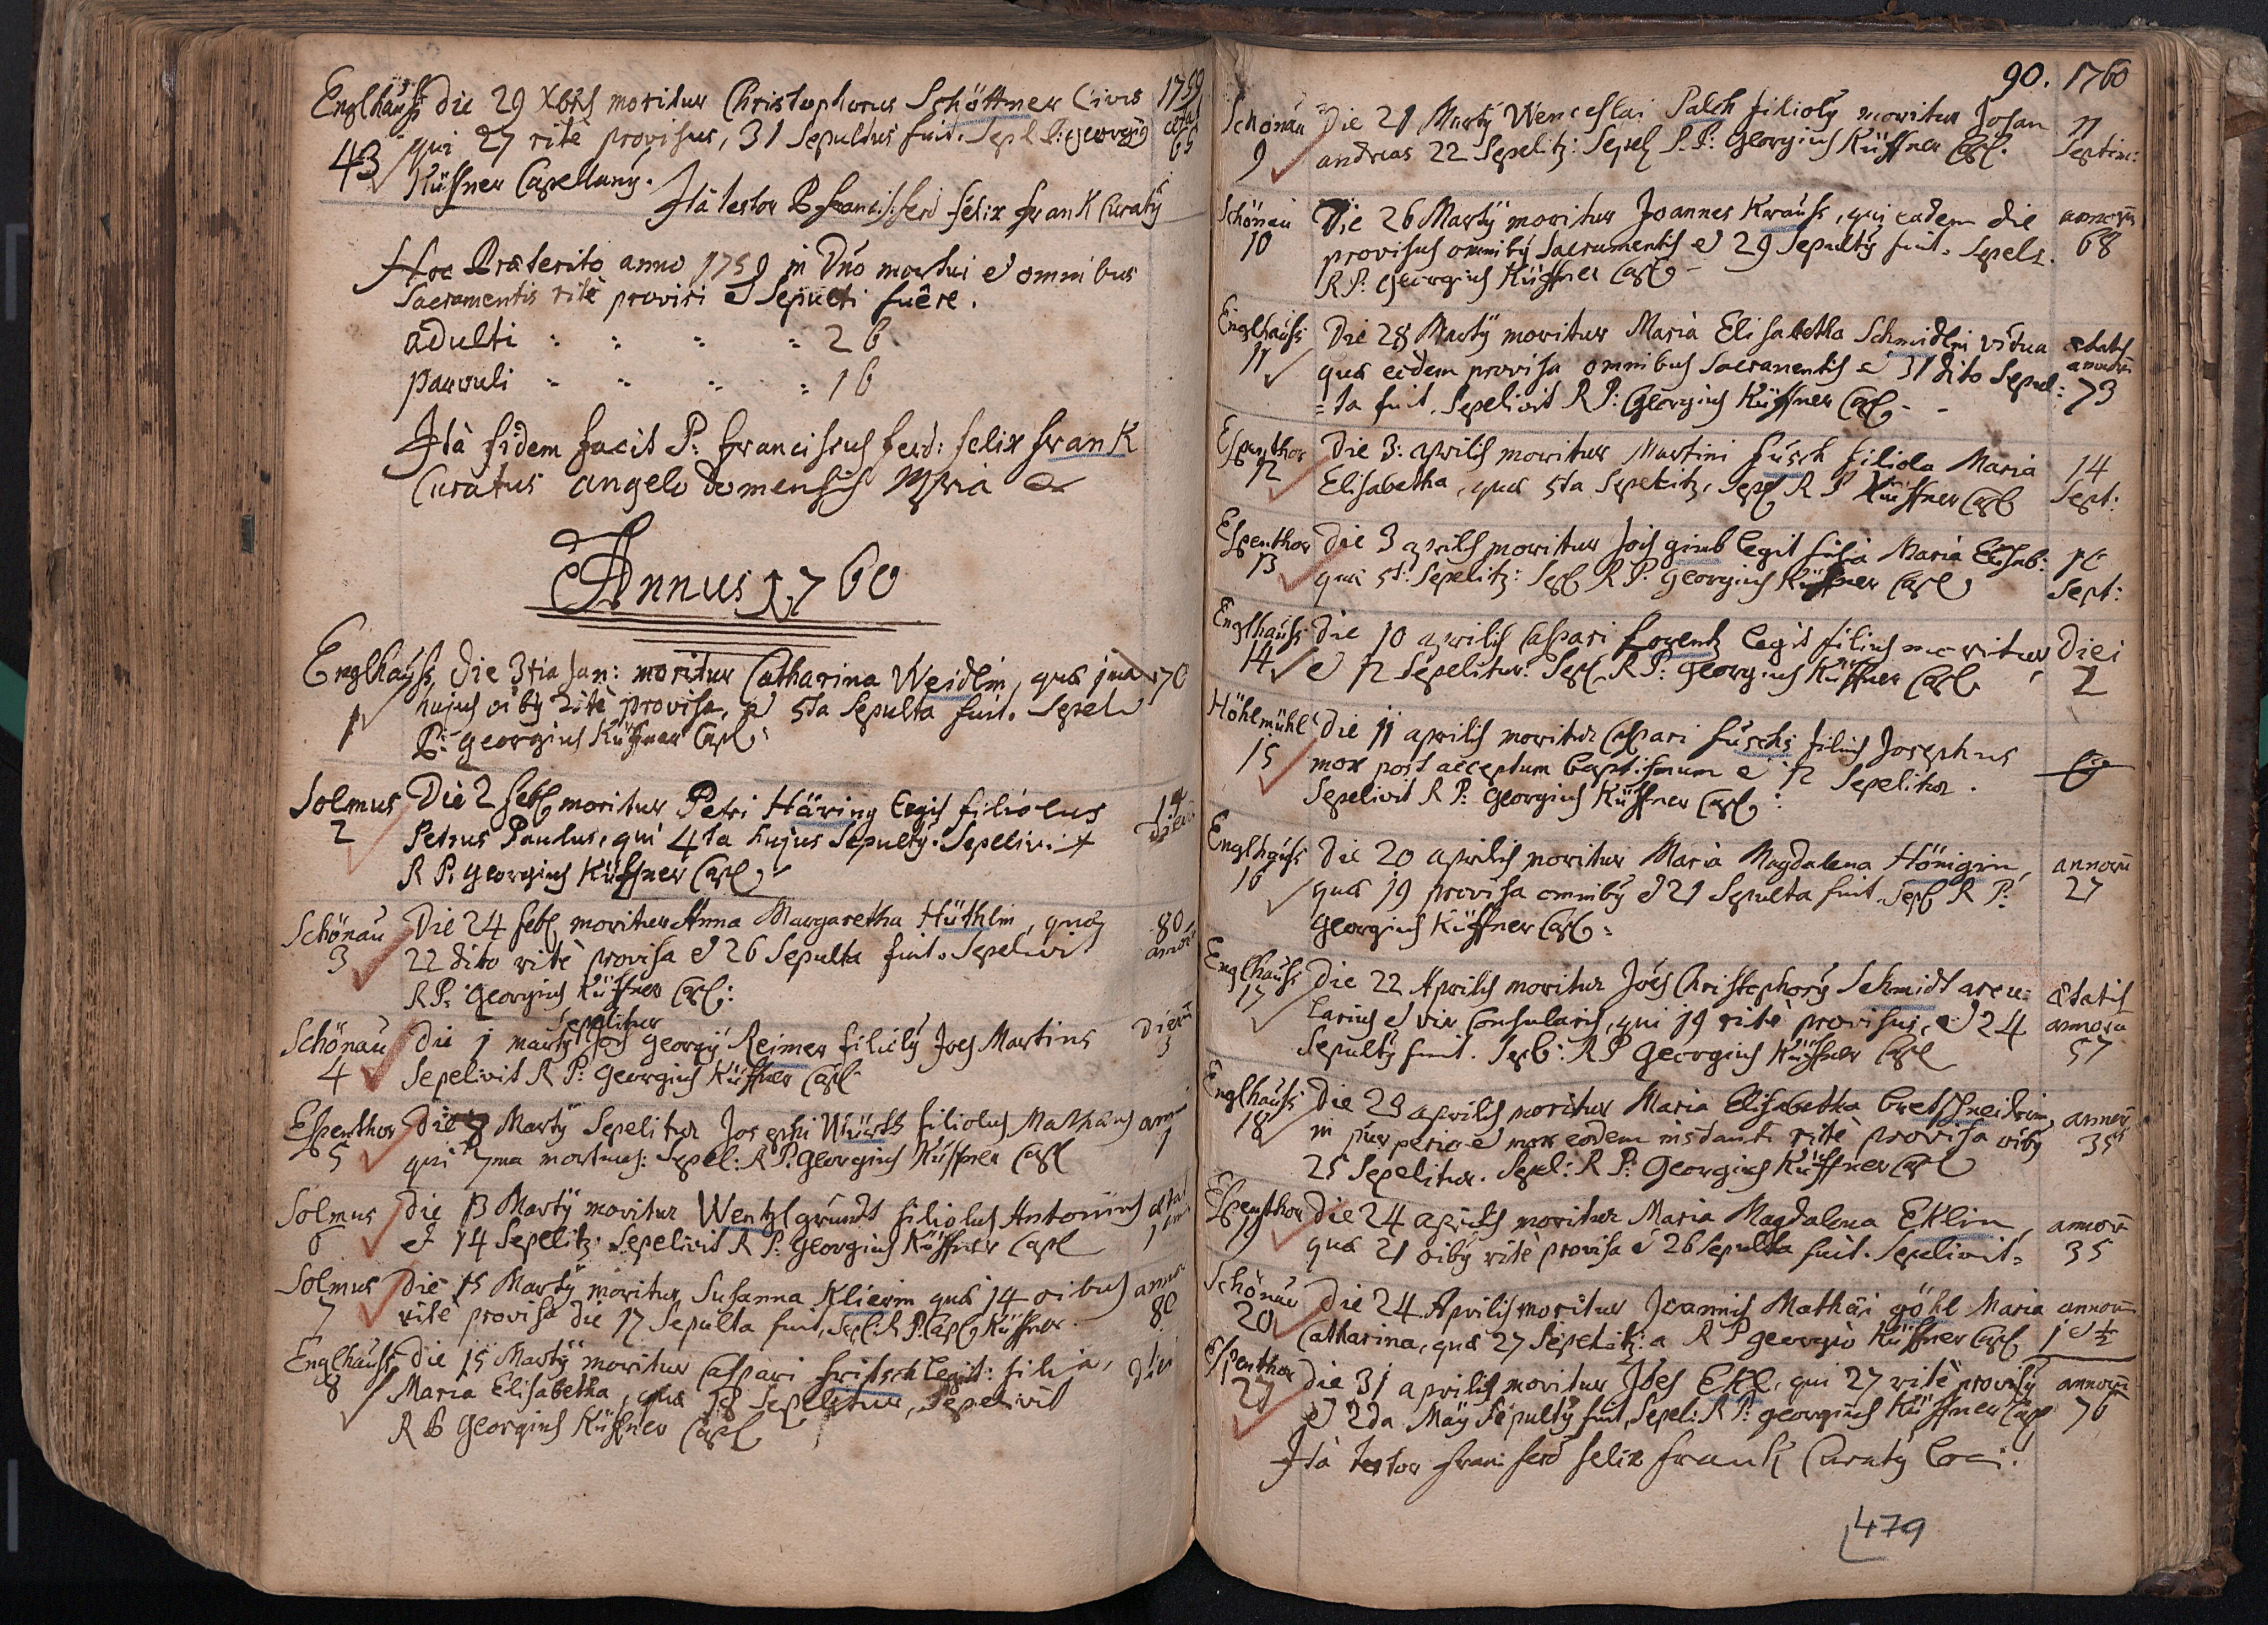 Englhauß die 29 Xbris moritur Christophorus Schöttner Civis 1759
43 qui 27 ritè provisus, 31 Sepultus fuit. Sepl P: georgig aetat 65
Küffner Capellany.
Ità testor P Francis: ferd felix frank Curaty
Hoc Præterito anno 1759 in Dno mortui et omnibus
Sacramentis ritè provisi et Sepulti fuêre.
adulti : : : : 26
parvuli : : : : 16
Ità fidem facit P: franciscus ferd: felix frank
Curatus angelo domensis Mpria
Annus 1760
Englhauß die 3tia Jan: moritur Catharina Weidlin, quæ 70
1 hujus oiby ritè provisa, et 5ta Sepulta fuit. Sepel
P: georgius Küffner Capl:
Solmus Die 2 feb moritur Petri Häring legit filiolus
2 Petrus Paulus, qui 4ta hujus Sepulty. Sepelivit
R P: georgius Küffner Capl
Schönau Die 24 feb moritur Anna Margaretha Hüthlin, quæ 80
3 22 dito ritè provisa et 26 Sepulta fuit. Sepelivit
R P: Georgius Küffner Capl:
Sepelitur
Schönau die 1 marty Jois Georgÿ Reimer filioly Joes Martins dierū
4 Sepelivit R P: Georgius Küffner Capl 3
Espenthor die 8 Martÿ Sepelitur Josephi Würth filiolus Mathæus
5 qui 7ma mortuus: Sepel: R P: Georgius Küffner Capl 1
Solmus die 13 Martÿ moritur Wentzl gründt filiolus Antonius
6 et 14 Sepelitz. Sepelivit R P: Georgius Küffner Capl
Solmus die 15 Martÿ moritur Susanna Klierin quæ 14 oibus
7 ritè provisa die 17 Sepulta fuit, Sepl R P: Capl Küffner. 80
Englhauß die 15 Martÿ moritur Caspari fritsch legit: filia,
8 Maria Elisabetha, quæ 18 Sepelitur, Sepelivit
R P Georgius Küffner Capl
90. 1760
Schönau Die 21 Martÿ Wenceslai Palch filioly moritur Johan 11
9 andreas 22 Sepelitz: Sepel R. P: Georgius Küffner Capl. Septim:
Schönau Die 26 Martÿ moritur Joannes Krauß, qui eadem die annorū
10 provisus omniby Sacramentis et 29 Sepulty fuit. Sepel. 68
R P: Georgius Küffner Capl
Englhauß Die 28 Martÿ moritur Maria Elisabetha Schmidlin vidua ætatis
11 quæ eidem provisa omnibus Sacramentis et 31 dito Sepul: annorū 73
=ta fuit. Sepelivit R P: Georgius Küffner Capl
Espenthor Die 3: aprilis moritur Martini fusch filiola Maria 14
12 Elisabetha, quæ 5ta Sepelitz, Sepl R P Küffner Capl Sept:
Espenthor die 3 aprilis moritur Jois gimb legit filia Maria Elisab:
13 quæ 5t: Sepelitz: Sepl R P: Georgius Küffner Capl Sept:
Englhauß die 10 aprilis Caspari Lorentz legit filius moritur, Diei
14 et 12 Sepelitur. Sepl R P: Georgius Küffner Capl 2
Höhlmühl die 11 aprilis moritur Caspari fuschs filius Josephus
15 mox post acceptum baptismum et 12 Sepelitur.
Sepelivit R P: Georgius Küffner Capl:
Englhauß die 20 aprilis moritur Maria Magdalena Hönigin, annorū
16 quæ 19 provisa omniby et 21 Sepulta fuit. Sepl R P: 27
Georgius Küffner Capl:
Englhauß Die 22 Aprilis moritur Joes Christophory Schmidt arcu: ætatis
17 larius et vir Consularis, qui 19 ritè provisus, et 24 annorū
Sepulty fuit. Sepl: R P Georgius Küffner Capl 57
Englhauß die 23 aprilis moritur Maria Elisabetha bretschneidrin, annorū
18 in puerperio et mox eodem instanti ritè provisa oiby 35
25 Sepelitur. Sepel: R P: Georgius Küffner Capl
Espenthor die 24 aprilis moritur Maria Magdalena Eklin, annorū
19 quæ 21 oiby ritè provisa et 26 Sepulta fuit. Sepelivit: 35
Schönau die 24 Aprilis moritur Joannis Mathæi göhl Maria annorū
20 Catharina, quæ 27 Sepelitz: a R P georgio Küffner Capl 1 et ½
Espenthor die 31 aprilis moritur Joes Ekl, qui 27 ritè provisy annorū
21 et 2da Maÿ Sepulty fuit, Sepel: R P: georgius Küffner Capl 76
Ità testor franc ferd felix frank Curaty loci.
479